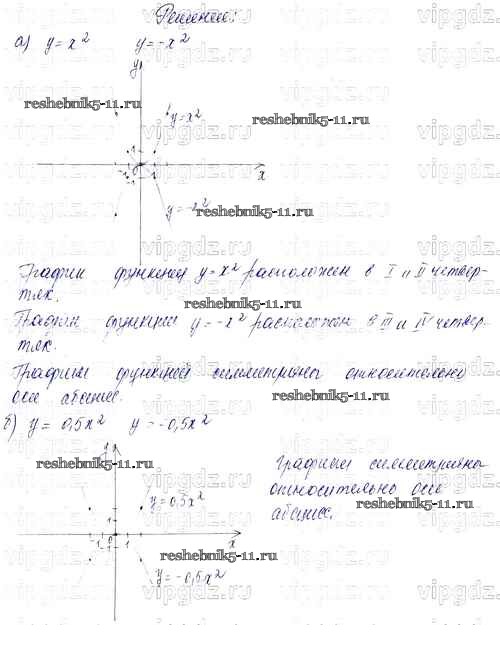 Решение:
а) y = x² y = -x²
y
reshebnik5-11.ru
y = x²
reshebnik5-11.ru
1
-1 0 1
-1
x
y = -x²
reshebnik5-11.ru
График функции y = x² расположен в I и II четвер-
тях.
reshebnik5-11.ru
График функции y = -x² расположен в III и IV четвер-
тях.
Графики функций симметричны относительно
оси абсцисс.
reshebnik5-11.ru
б) y = 0,5x² y = -0,5x²
y
reshebnik5-11.ru
Графики симметричны
относительно оси
абсцисс.
reshebnik5-11.ru
y = 0,5x²
1
-1 0 1
-1
x
reshebnik5-11.ru
y = -0,5x²
vipgdz.ru